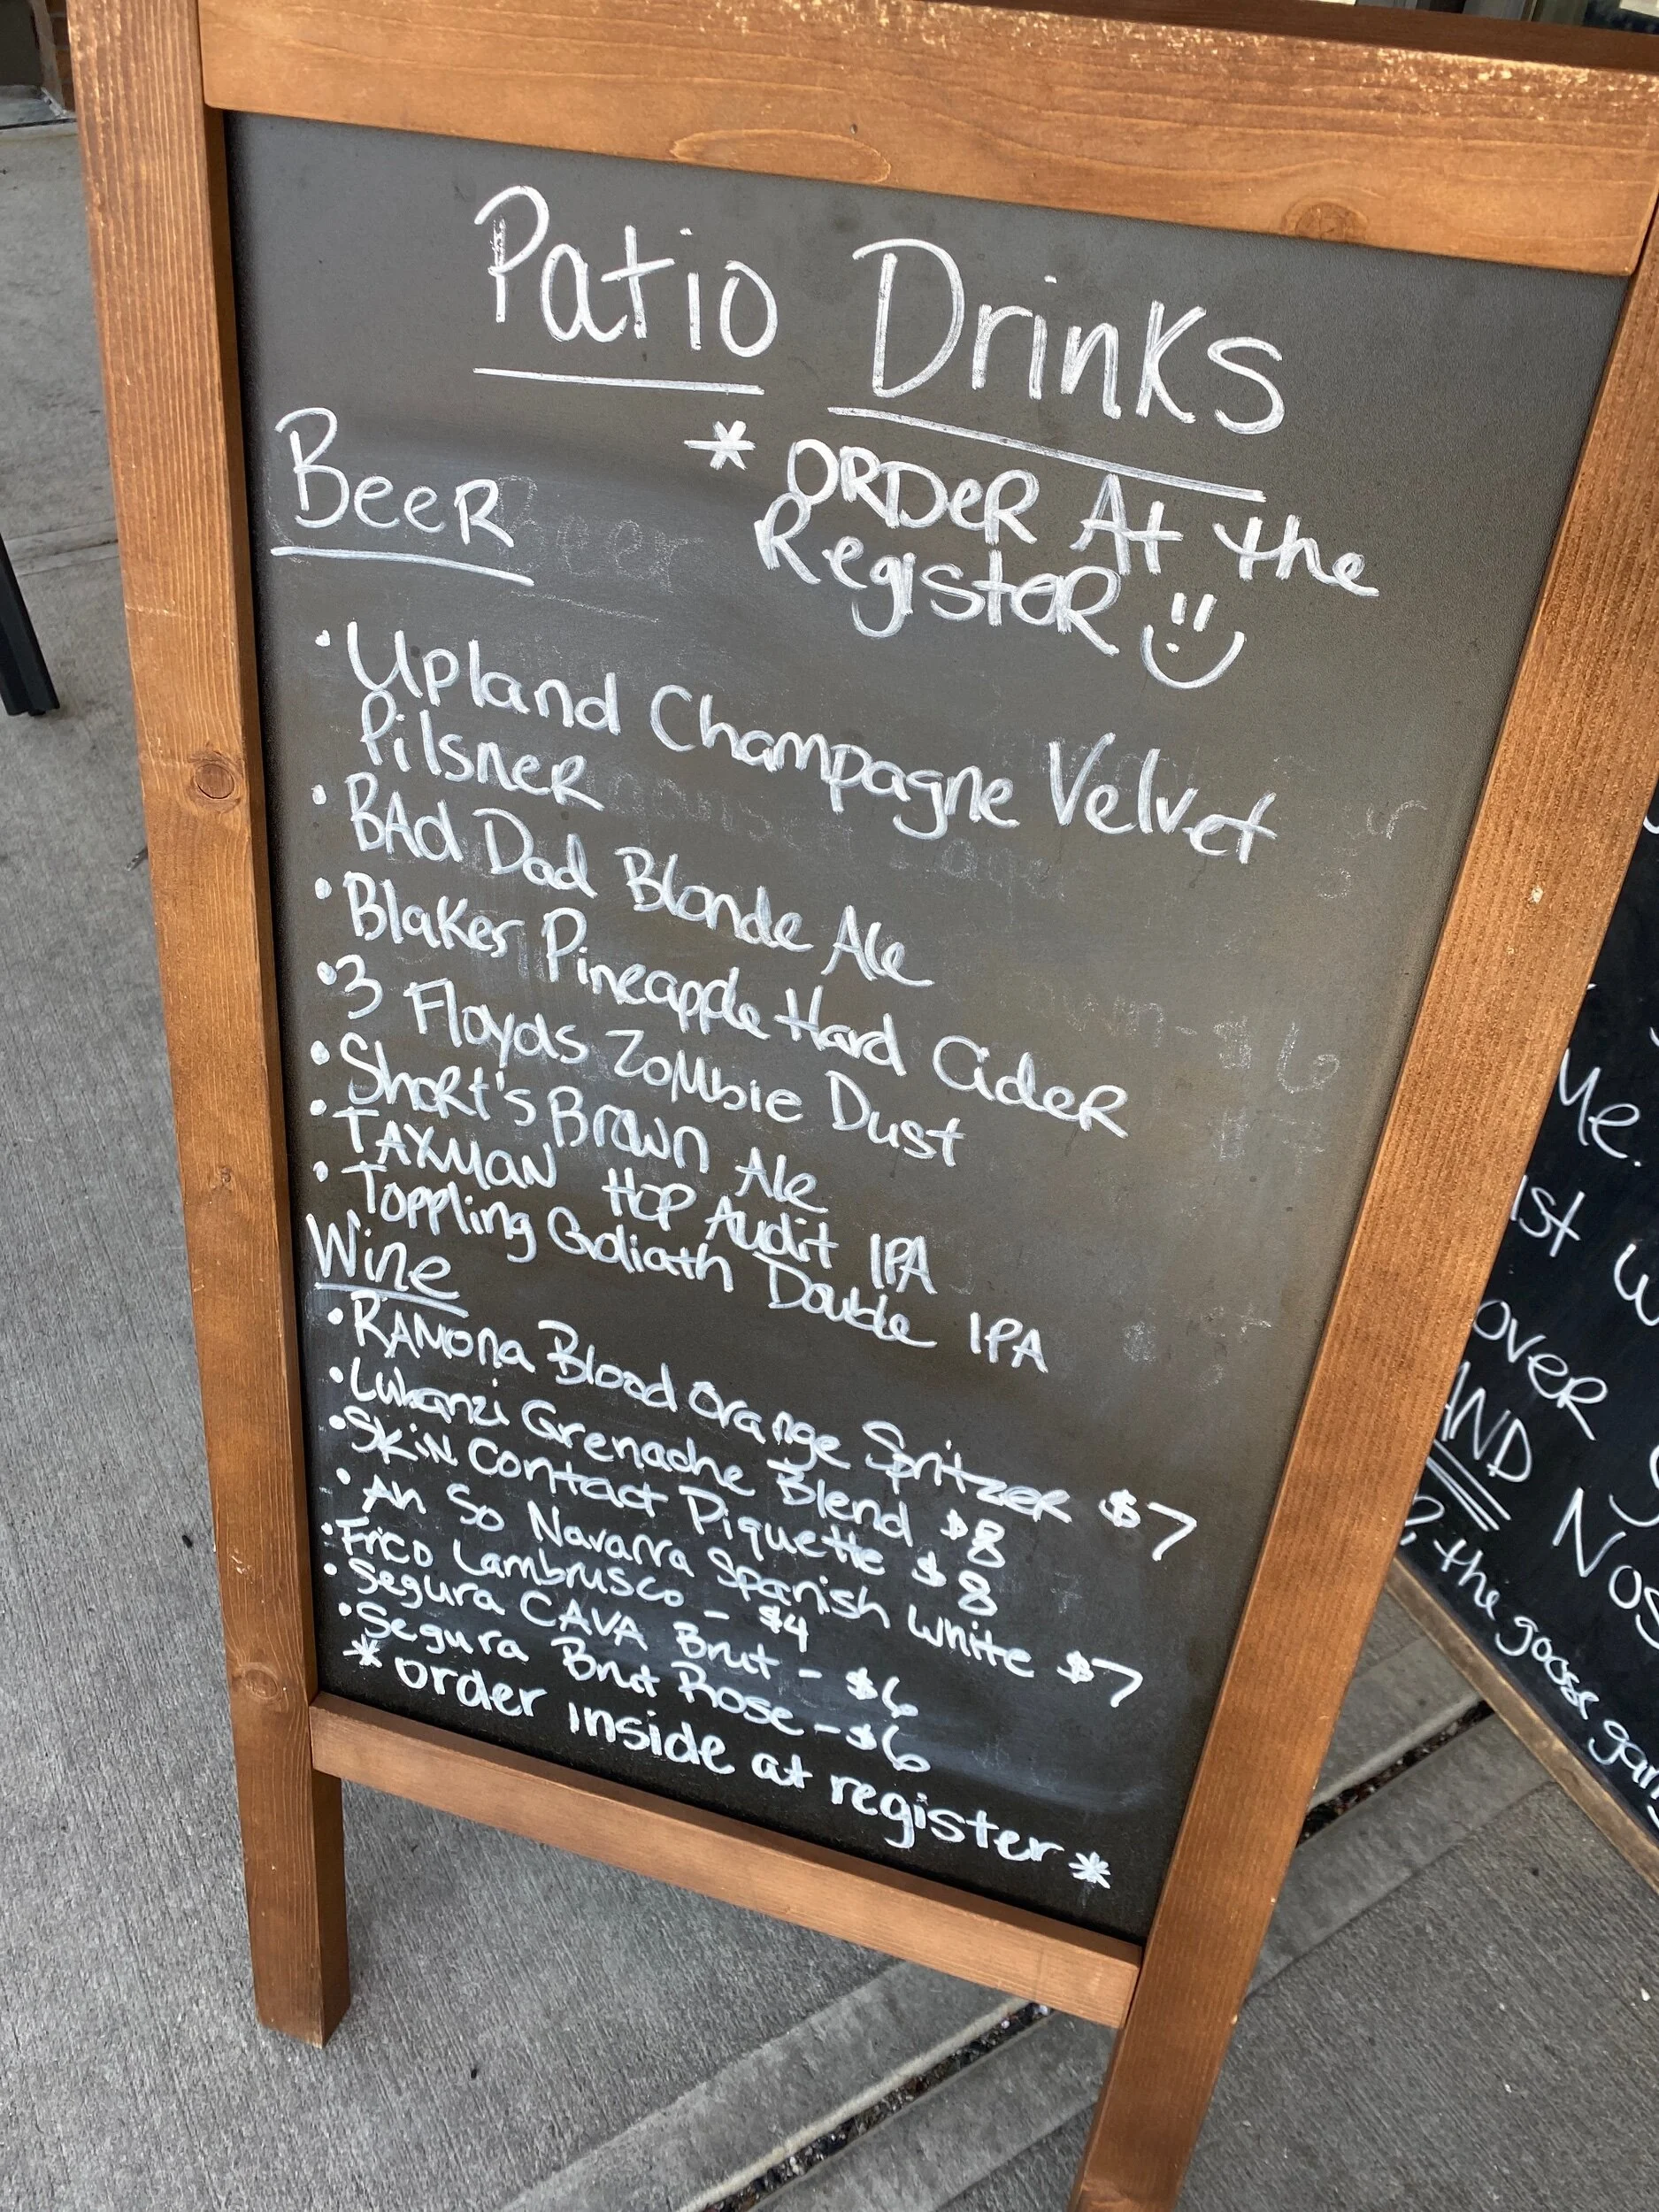 Patio Drinks
* ORDeR At the
RegisteR
BeeR
Beer
• Upland Champagne Velvet
PilsneR
• BAd Dad Blonde Ale
• Blakes Pineapple Hard CideR
• 3 Floyds ZoMbie Dust
• ShoRt's Brown Ale
• TAXMAN HOP Audit IPA
• Toppling Goliath Double IPA
Wine
• RAMona Blood Orange SpritzeR $7
• Lukanzi Grenache Blend $8
• SKiN Contact Piquette $8
• An So Navarra Spanish White $7
• Frico Lambrusco - $4
• Segura CAVA Brut - $6
• Segura Brut Rose - $6
* order inside at register *
Me.
oveR
AND NOS
the goose